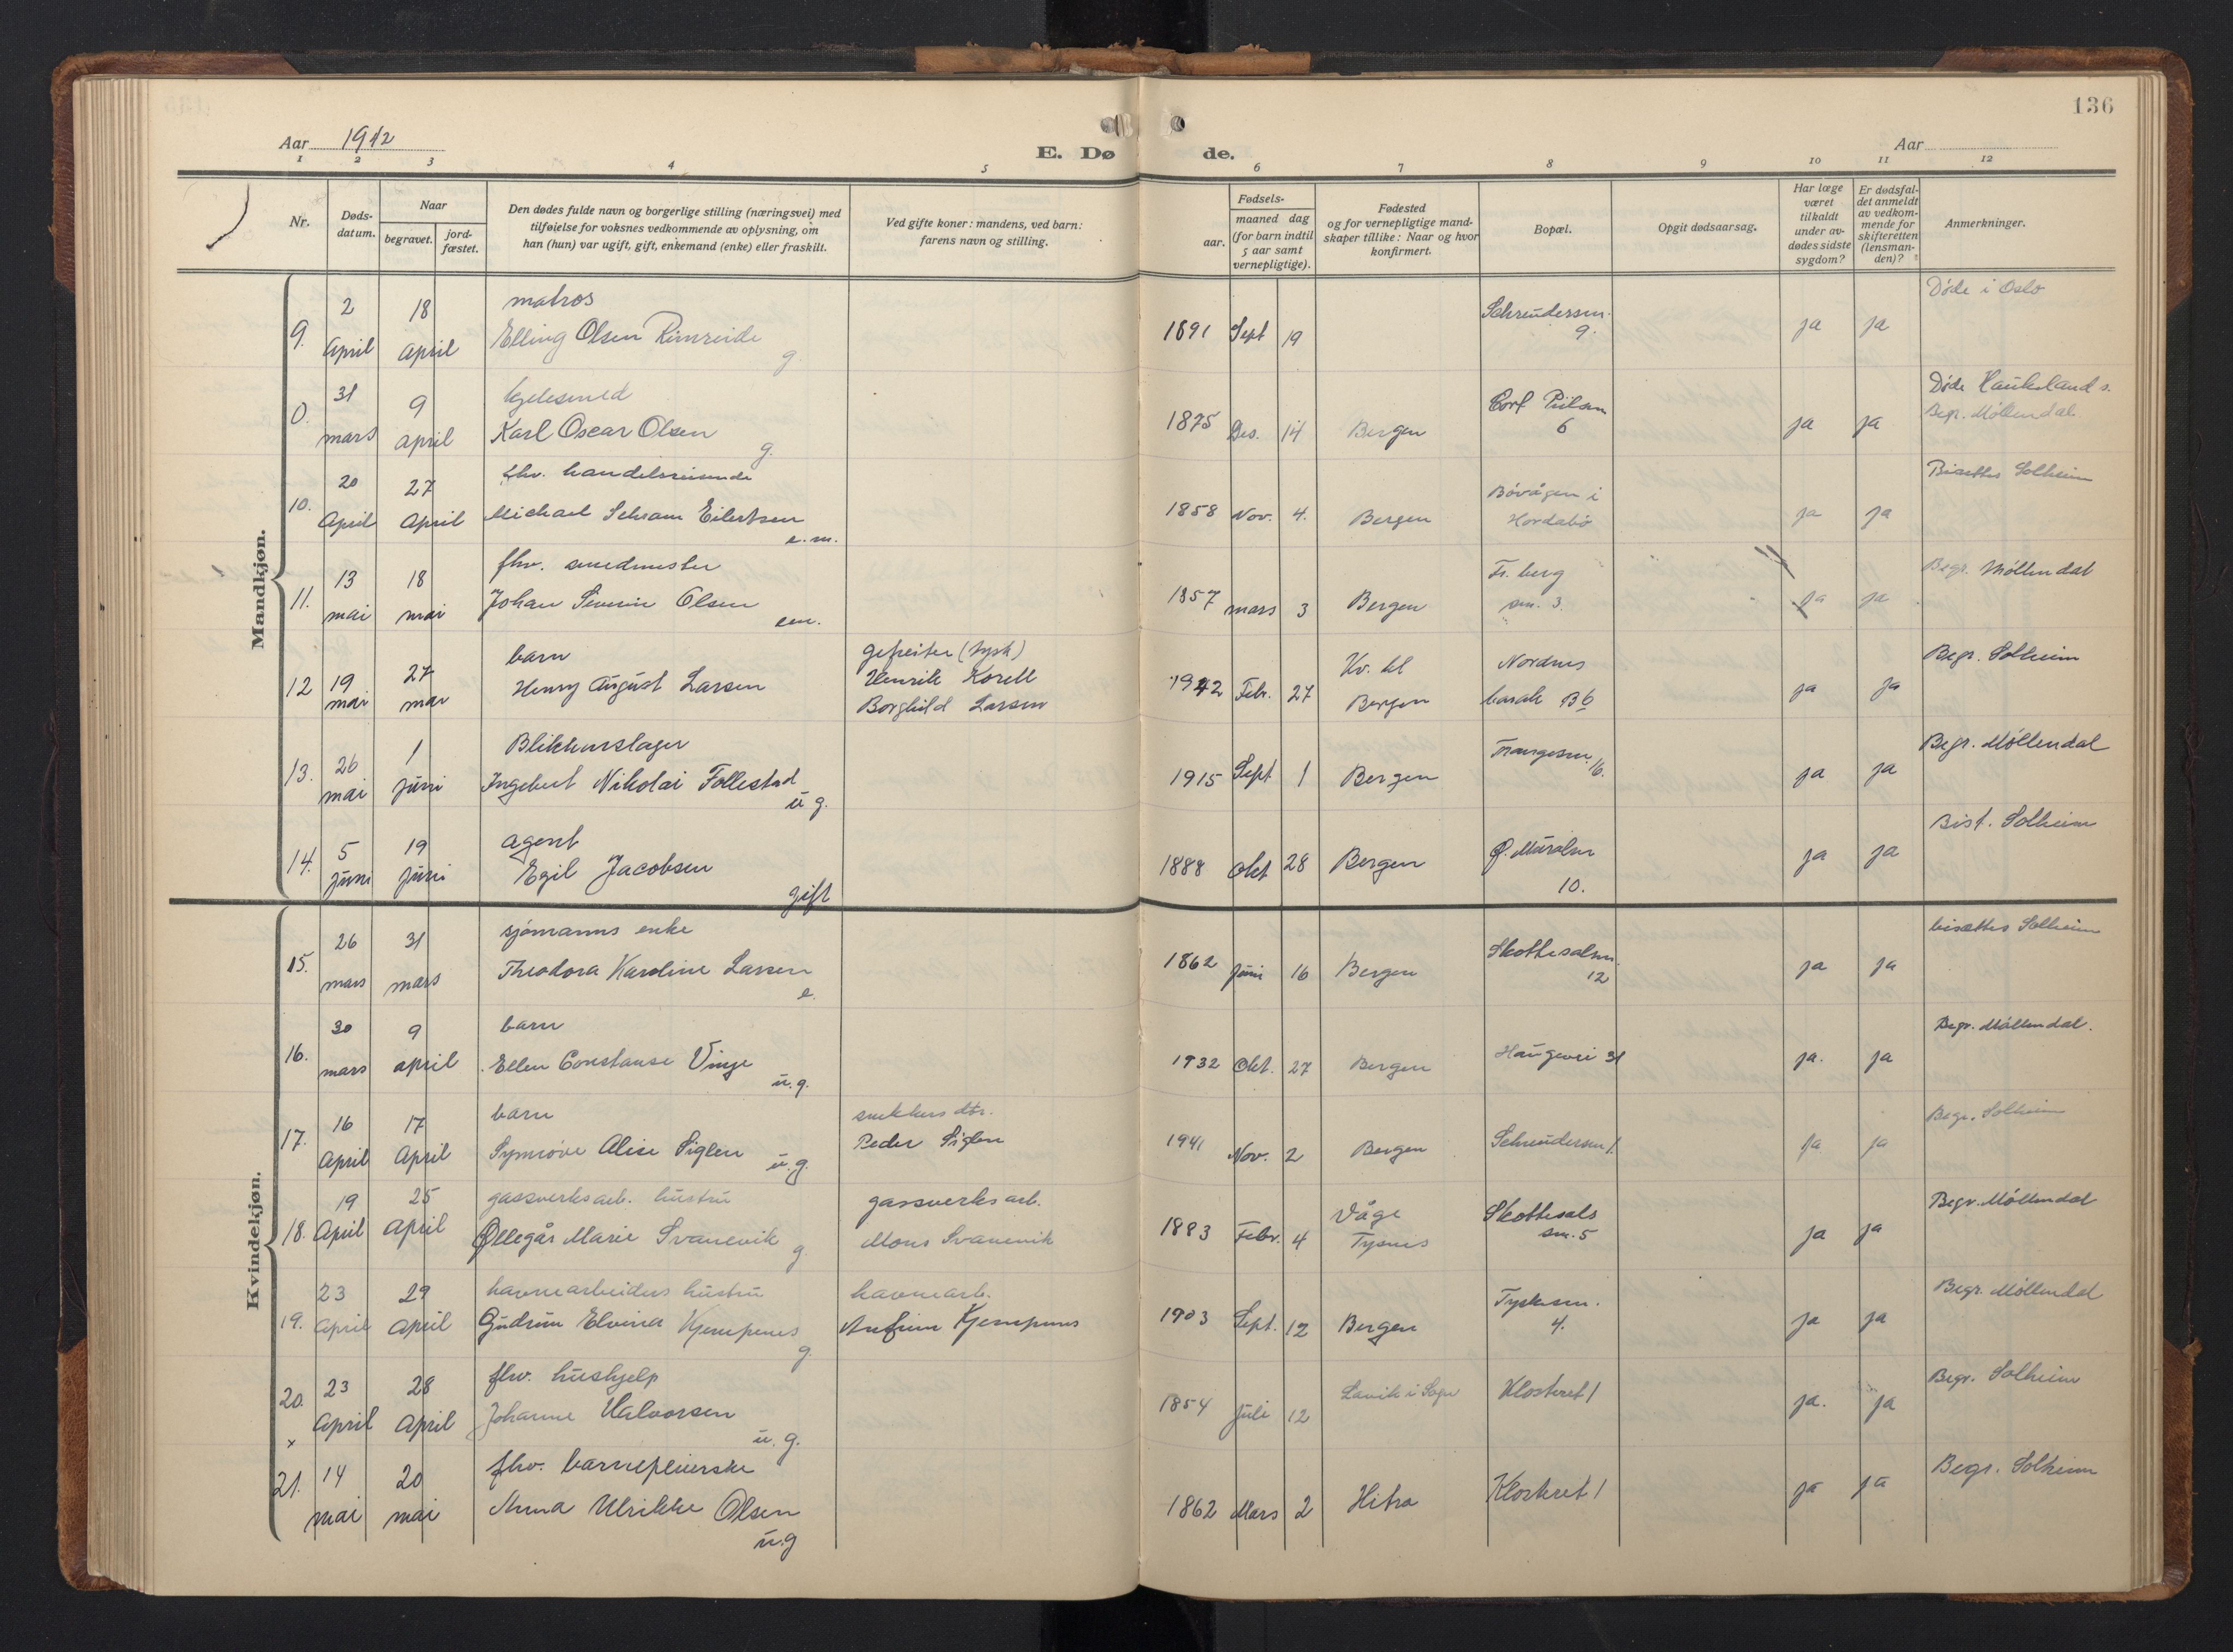 136
Aar 1942
E. Dø de.
Aar
1 2 3 4 5 6 7 8 9 10 11 12
Nr.
Døds-
datum.
Naar
begravet.
jord-
fæstet.
Den dødes fulde navn og borgerlige stilling (næringsvei) med
tilføielse for voksnes vedkommende av oplysning, om
han (hun) var ugift, gift, enkemand (enke) eller fraskilt.
Ved gifte koner: mandens, ved barn:
farens navn og stilling.
Fødsels-
aar.
maaned dag
(for barn indtil
5 aar samt
vernepligtige).
Fødested
og for vernepligtige mand-
skaper tillike: Naar og hvor
konfirmert.
Bopæl.
Opgit dødsaarsag.
Har læge
været
tilkaldt
under av-
dødes sidste
sygdom?
Er dødsfal-
det anmeldt
av vedkom-
mende for
skifteretten
(lensman-
den)?
Anmerkninger.
Mandkjøn.
9. 2 April 18 April
matros
Elling Olsen Rimreide
g.
1891 Sept 19
Schreudersm.
9.
ja ja
Døde i Oslo
0. 31 mars 9 april
kjelesmed
Karl Oscar Olsen
g.
1875 Des. 14 Bergen
6
ja ja
Døde Haukeland s.
Begr. Møllendal.
10. 20 April 27 April
fhv. handelsreisende
Michael Schram Eilertsen
e.m.
1858 Nov. 4. Bergen
Bøvågen i
Hordabø
ja ja
Bisettes Solheim
11. 13 mai 18 mai
fhv. smedmester
Johan Severin Olsen
em.
1857 mars 3 Bergen
Fr. berg
sm. 3.
ja ja
Begr. Møllendal
12 19 mai 27 mai
barn
Henry August Larsen
gefreiter (tysk)
Henrik Korell
Borghild Larsen
1942 Febr. 27
Kv. kl
Bergen
Nordnes
barak B6
ja ja
Begr. Solheim
13. 26 mai 1 juni
Blikkenslager
Ingebert Nikolai Follestad
u.g.
1915 Sept 1 Bergen
Trangesm. 16.
ja ja
Begr. Møllendal
14. 5 juni 19 juni
agent
Egil Jacobsen
gift
1888 Okt 28 Bergen
Ø. Muralm
10.
ja ja
Bist. Solheim
Kvindekjøn.
15. 26 mars 31 mars
sjømanns enke
Theodora Karoline Larsen
e.
1862 juni 16 Bergen
Skottesalsm.
12
ja ja
bisættes Solheim
16. 30 mars 9 april
barn
Ellen Constanse Vinje
u.g.
1932 Okt. 27 Bergen
Haugevei 31
ja. ja
Begr. Møllendal.
17. 16 April 17 April
barn
Synnøve Alise Siglen
u.g.
snekkers dtr.
Peder Siglen
1941 Nov. 2 Bergen
Schreudersm 1.
ja ja
Begr. Solheim
18. 19 April 25 April
gassverksarb. hustru
Øllegår Marie Svanevik
g.
gassverksarb.
Mons Svanevik
1883 Febr. 4
Våge
Tysnes
Skottesals
sm. 5
ja ja
Begr. Møllendal
19. 23 April 29 April
havnearbeiders hustru
Gudrun Elvina Kjempenes
g.
havnearb.
Anfinn Kjempenes
1903 Sept. 12 Bergen
Tyskesm.
4.
ja ja
Begr. Møllendal
20. x 23 April 28 April
fhv. hushjelp
Johanne Halvorsen
u.g.
1854 Juli 12 Lavik i Sogn
Klosteret 1
ja. ja
Begr. Solheim
21. 14 mai 20 mai
fhv. barnepleierske
Anna Ulrikke Olsen
u.g
1862 Mars 2 Hitra
Klosteret 1
ja ja
Begr. Solheim